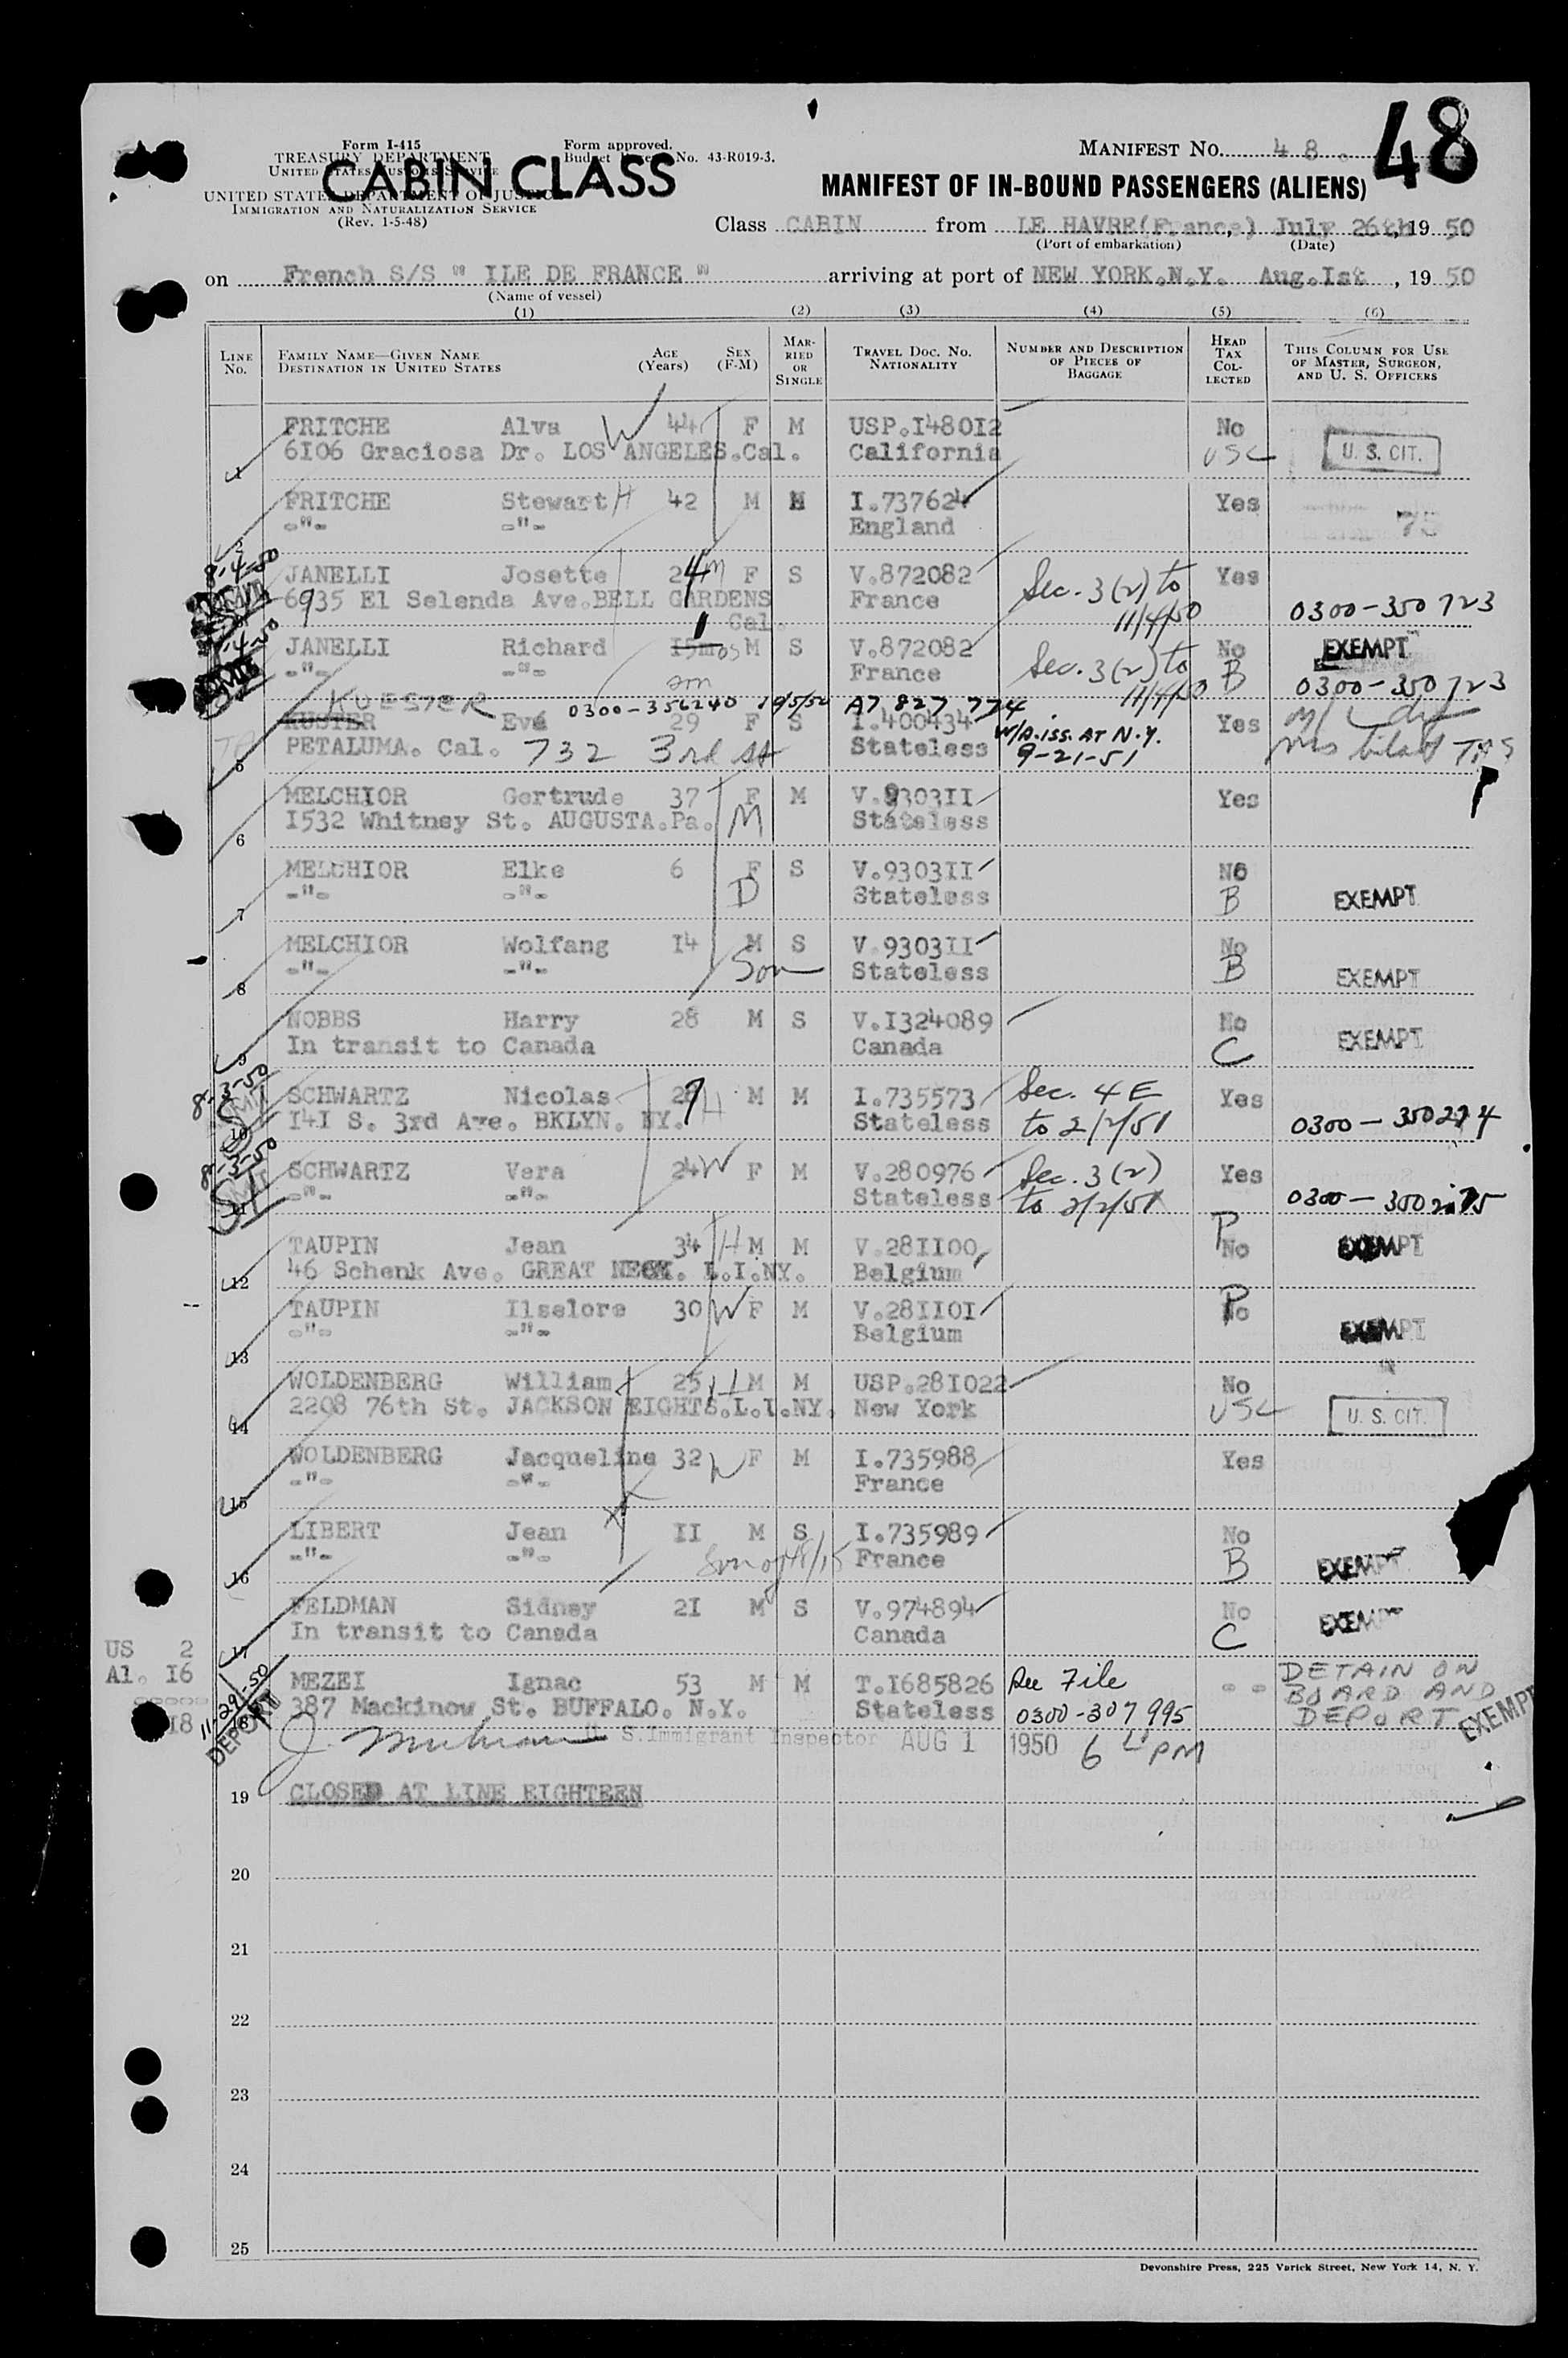 48
Form I-415
TREASURY DEPARTMENT
UNITED STATES CUSTOMS SERVICE
UNITED STATES DEPARTMENT OF JUSTICE
IMMIGRATION AND NATURALIZATION SERVICE
(Rev. 1-5-48)
Form approved.
Budget No. 43-R019-3.
CABIN CLASS
MANIFEST NO. 48.
MANIFEST OF IN-BOUND PASSENGERS (ALIENS)
Class CABIN from LE HAVRE(France,) July 26th, 19 50
(Port of embarkation) (Date)
on French S/S " ILE DE FRANCE " arriving at port of NEW YORK.N.Y. Aug.Ist , 19 50
(Name of vessel)
(1) (2) (3) (4) (5) (6)
LINE No. FAMILY NAME—GIVEN NAME DESTINATION IN UNITED STATES AGE (Years) SEX (F-M) MARRIED OR SINGLE TRAVEL DOC. NO. NATIONALITY NUMBER AND DESCRIPTION OF PIECES OF BAGGAGE HEAD TAX COLLECTED THIS COLUMN FOR USE OF MASTER, SURGEON, AND U. S. OFFICERS
FRITCHE Alva W 44 F M USP.I48OI2 No
1 6I06 Graciosa Dr. LOS ANGELES.Cal. California USC U. S. CIT.
FRITCHE Stewart H 42 M M I.737624 Yes
2 -"- -"- England 75
8-4-50 JANELLI Josette 24 M F S V.872082 Sec. 3(2) to Yes
6935 El Selenda Ave.BELL GARDENS Cal. France 11/4/50 0300-350723
8-4-50 JANELLI Richard 1 I5mos M S V.872082 Sec. 3(2) to No EXEMPT
-"- -"- son France 11/4/50 B 0300-350723
KUESTER 0300-356240 10/5/50 A7 827 774
KUSTER Eve 29 F S I.400434 W/A.ISS. AT N.Y. Yes
5 PETALUMA. Cal. 732 3rd St Stateless 9-21-51
MELCHIOR Gertrude 37 F M V.9303II Yes
6 I532 Whitney St. AUGUSTA.Pa. M Stateless
MELCHIOR Elke 6 F S V.9303II No
7 -"- -"- D Stateless B EXEMPT
MELCHIOR Wolfang I4 M S V.9303II No
8 -"- -"- Son Stateless B EXEMPT
NOBBS Harry 28 M S V.I324089 No
9 In transit to Canada Canada C EXEMPT
8-3-50 SCHWARTZ Nicolas H M M I.735573 Sec. 4E Yes
10 I4I S. 3rd Ave. BKLYN. NY. Stateless to 2/2/51 0300-350274
8-3-50 SCHWARTZ Vera 24 W F M V.280976 Sec. 3(2) Yes
11 -"- -"- Stateless to 2/2/51 0300-350275
TAUPIN Jean 34 H M M V.28II00 P No EXEMPT
12 46 Schenk Ave. GREAT NECK. L.I.NY. Belgium
TAUPIN Ilselore 30 W F M V.28II0I P No
13 -"- -"- Belgium EXEMPT
WOLDENBERG William 25 H M M USP.28I022 No
14 2208 76th St. JACKSON EIGHTS.L.I.NY. New York USC U. S. CIT.
WOLDENBERG Jacqueline 32 W F M I.735988 Yes
15 -"- -"- France
LIBERT Jean II M S I.735989 No
16 -"- -"- Son of 48/15 France B EXEMPT
FELDMAN Sidney 2I M S V.974894 No
17 In transit to Canada Canada C EXEMPT
US 2
Al. I6
I8
11-29-50 MEZEI Ignac 53 M M T.I685826 See File - - DETAIN ON
18 387 Mackinow St. BUFFALO. N.Y. Stateless 0300-307995 BOARD AND DEPORT EXEMPT
DEPORT
U. S. Immigrant Inspector AUG 1 1950 6 PM
19 CLOSED AT LINE EIGHTEEN
20
21
22
23
24
25
Devonshire Press, 225 Varick Street, New York 14, N. Y.